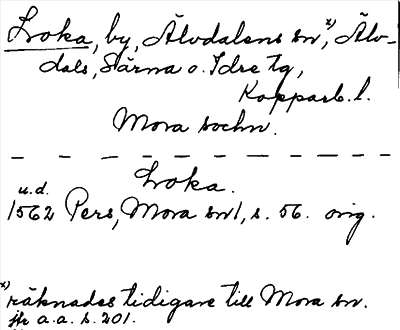 Loka, by, Älvdalens sn x), Älv-
dals, Särna o. Idre tg,
Kopparb. l.
Mora sochn.
Loka.
u.d.
1562 Pers, Mora sn 1, s. 56. orig.
x) räknades tidigare till Mora sn.
jfr a.a. s. 201.